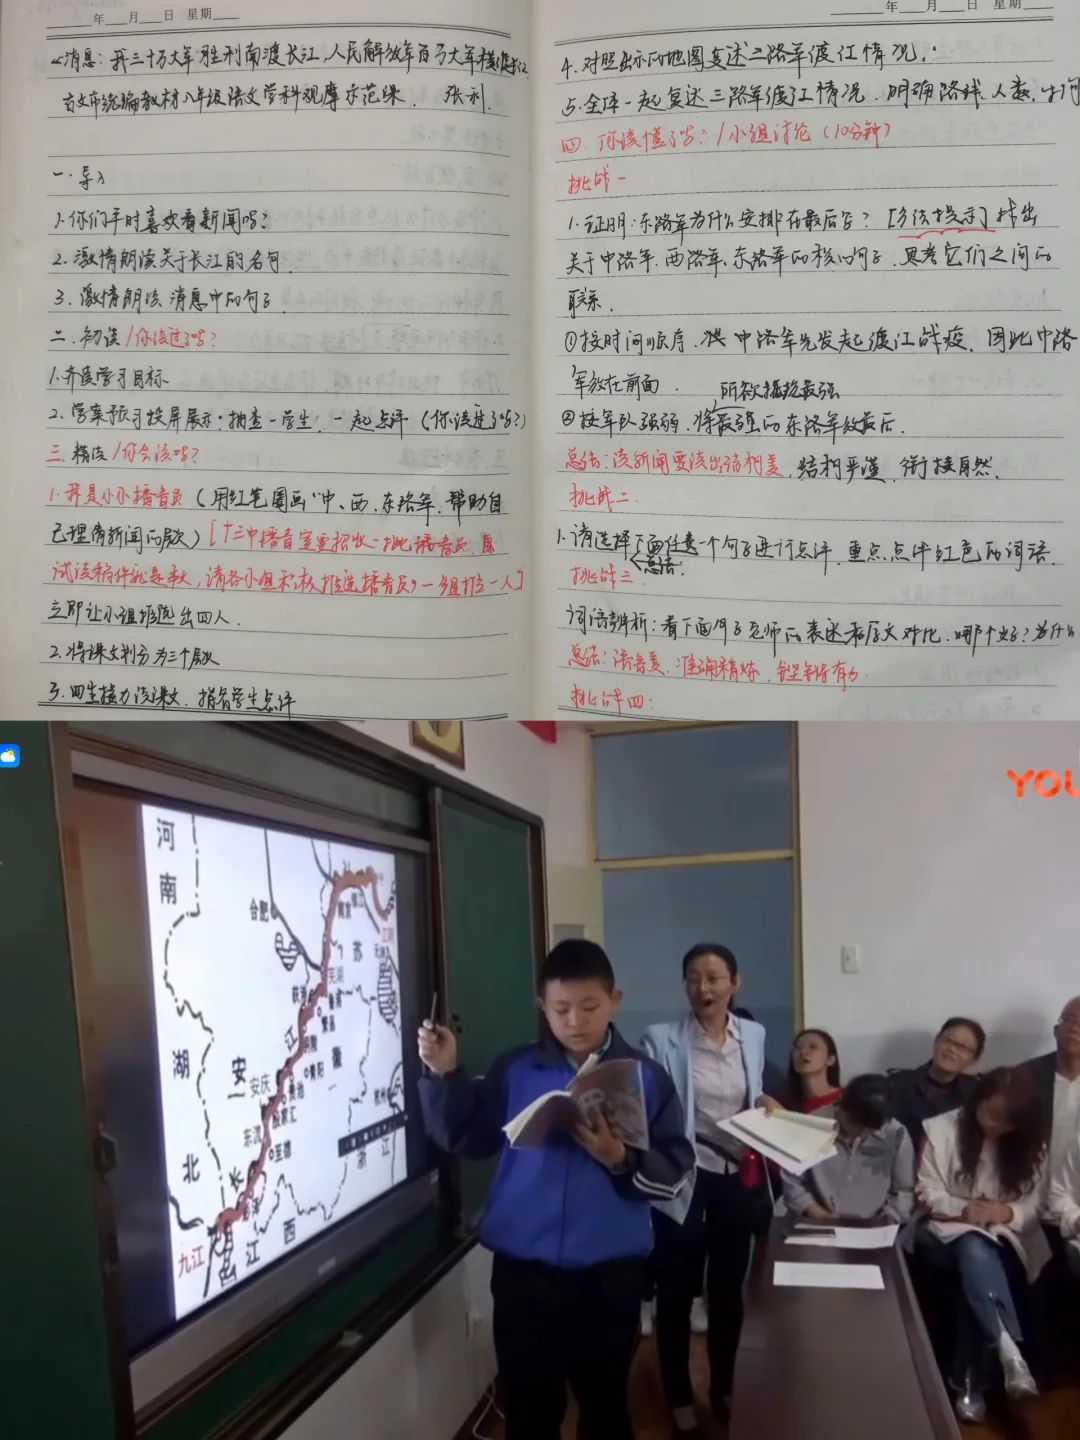 年 月 日 星期
《消息:我三十万大军胜利南渡长江,人民解放军百万大军横渡长江
古文布统编教材八年级语文学科观摩示范课. 张利.
一.导入
1.你们平时喜欢看新闻吗?
2.激情朗读关于长江的名句.
3.激情朗读消息中的句子.
二.初读/你读过了吗?
1.齐读学习目标
2.学案预习投屏展示:抽查一学生,一起点评(你读过了吗?)
三.精读/你会读吗?
1.我是小小播音员(用红笔圈画"中、西、东路军,帮助自
己理清新闻的层次)[十三中播音室要招收一批播音员,
试读稿件就是本文,请各小组积极推选播音员,一组推选一人]
立即让小组推选出四人.
2.将课文划分为三个层次
3.四生接力读课文,指名学生点评
年 月 日 星期
4.对照出示的地图复述三路军渡江情况.
5.全体一起复述三路军渡江情况.明确路线、人数、时间
四.你读懂了吗?/小组讨论(10分钟)
挑战一
1.证明:东路军为什么安排在最后写?[方法提示]找出
关于中路军,西路军,东路军的核心句子,思考它们之间的
联系.
①按时间顺序,中路军先发起渡江战役,因此中路
军放在前面.
所欲抵抗最强
②按军队强弱,将最强的东路军放最后.
总结:读新闻要读出结构美,结构严谨,衔接自然.
挑战二.
1.请选择下面任意一个句子进行点评,重点点评红色的词语.
总结:
挑战三.
词语辨析:看下面句子老师的表述和原文对比,哪个好?为什么
总结:语言美,准确精炼,铿锵有力.
挑战四:
河南
合肥
南京
镇江
江阴
苏
无锡
芜湖
荻港
鲁港
繁昌
江
铜陵
青阳
安
徽
安庆
贵池
殷家汇
杭州
东流
至德
湖
北
长
彭泽
浙江
九江
湖口
江西
YOU